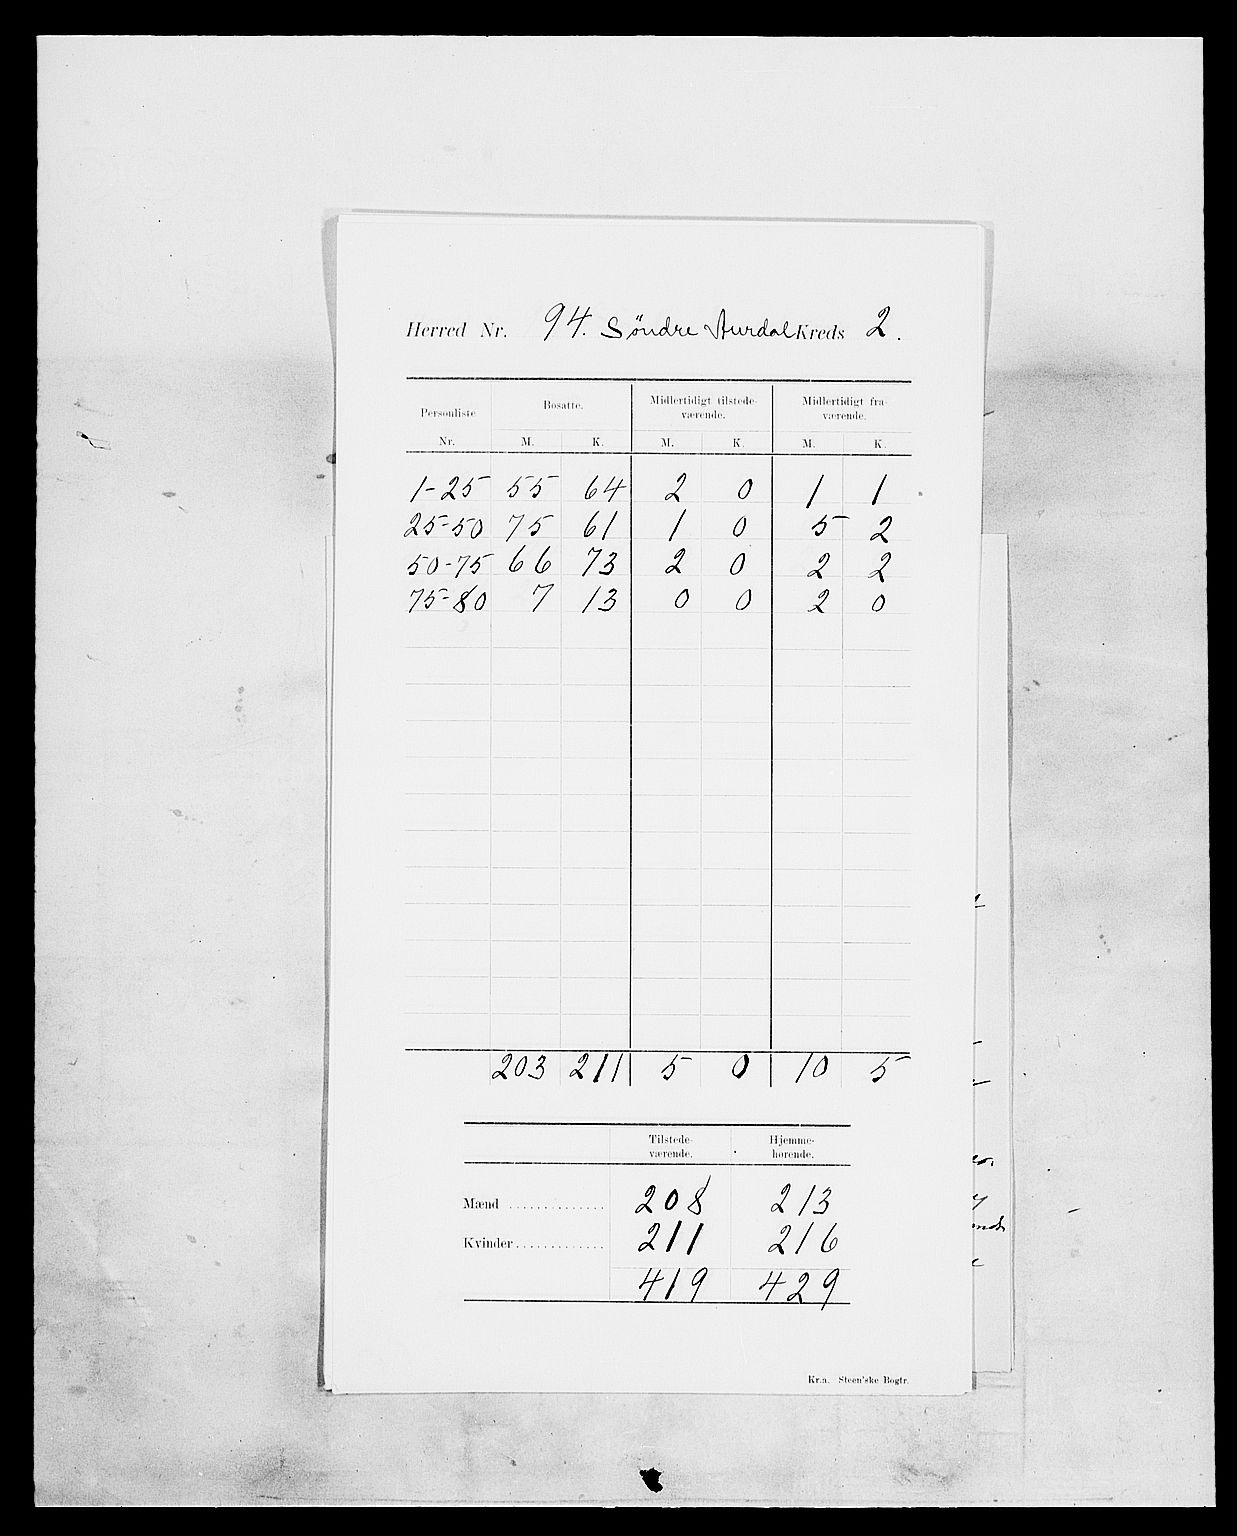 Herred Nr. 94. Söndre Aurdal Kreds 2.
Personliste Nr. Bosatte. Midlertidigt tilstede- Midlertidigt fra-
værende. værende.
M. K. M. K. M. K.
1-25 55 64 2 0 1 1
25-50 75 61 1 0 5 2
50-75 66 73 2 0 2 2
75-80 7 13 0 0 2 0
203 211 5 0 10 5
Tilstede- Hjemme-
værende. hørende.
Mænd .............. 208 213
Kvinder ............. 211 216
419 429
Kr.a. Steen'ske Bogtr.